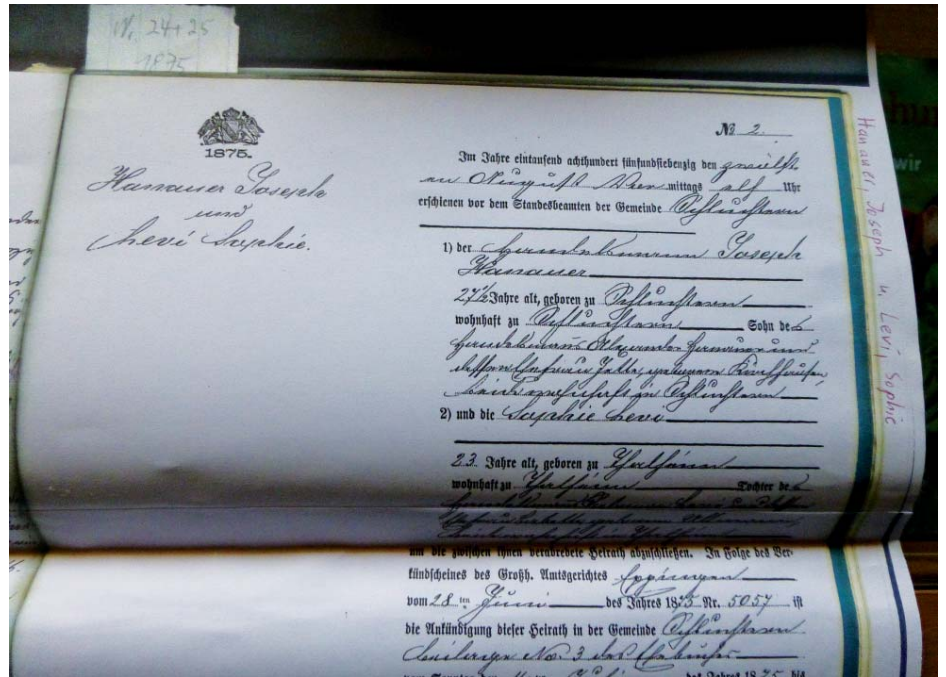 N. 24+25
1875
1875.
Hanauer Joseph
und
Levi Sophie.
№ 2.
Im Jahre eintausend achthundert fünfundsiebenzig den zwölft
en August Vor mittags elf Uhr
erschienen vor dem Standesbeamten der Gemeinde Schluchtern
1) der Handelsmann Joseph
Hanauer
27½ Jahre alt, geboren zu Schluchtern
wohnhaft zu Schluchtern Sohn des
Handelsmanns Alexander Hanauer und
dessen Ehefrau Jette, geborenen Kirchhausen,
beide wohnhaft in Schluchtern
2) und die Sophie Levi
23 Jahre alt, geboren zu Thalheim
wohnhaft zu Thalheim Tochter des
um die zwischen ihnen verabredete Heirath abzuschließen. In Folge des Ver-
kündscheines des Großh. Amtsgerichtes Eppingen
vom 28 ten Juni des Jahres 1875 Nr. 5057 ist
die Ankündigung dieser Heirath in der Gemeinde Schluchtern
Beilage No. 3 des Ehebuches
des Jahres 1875 bis
Hanauer, Joseph u. Levi, Sophie
wir